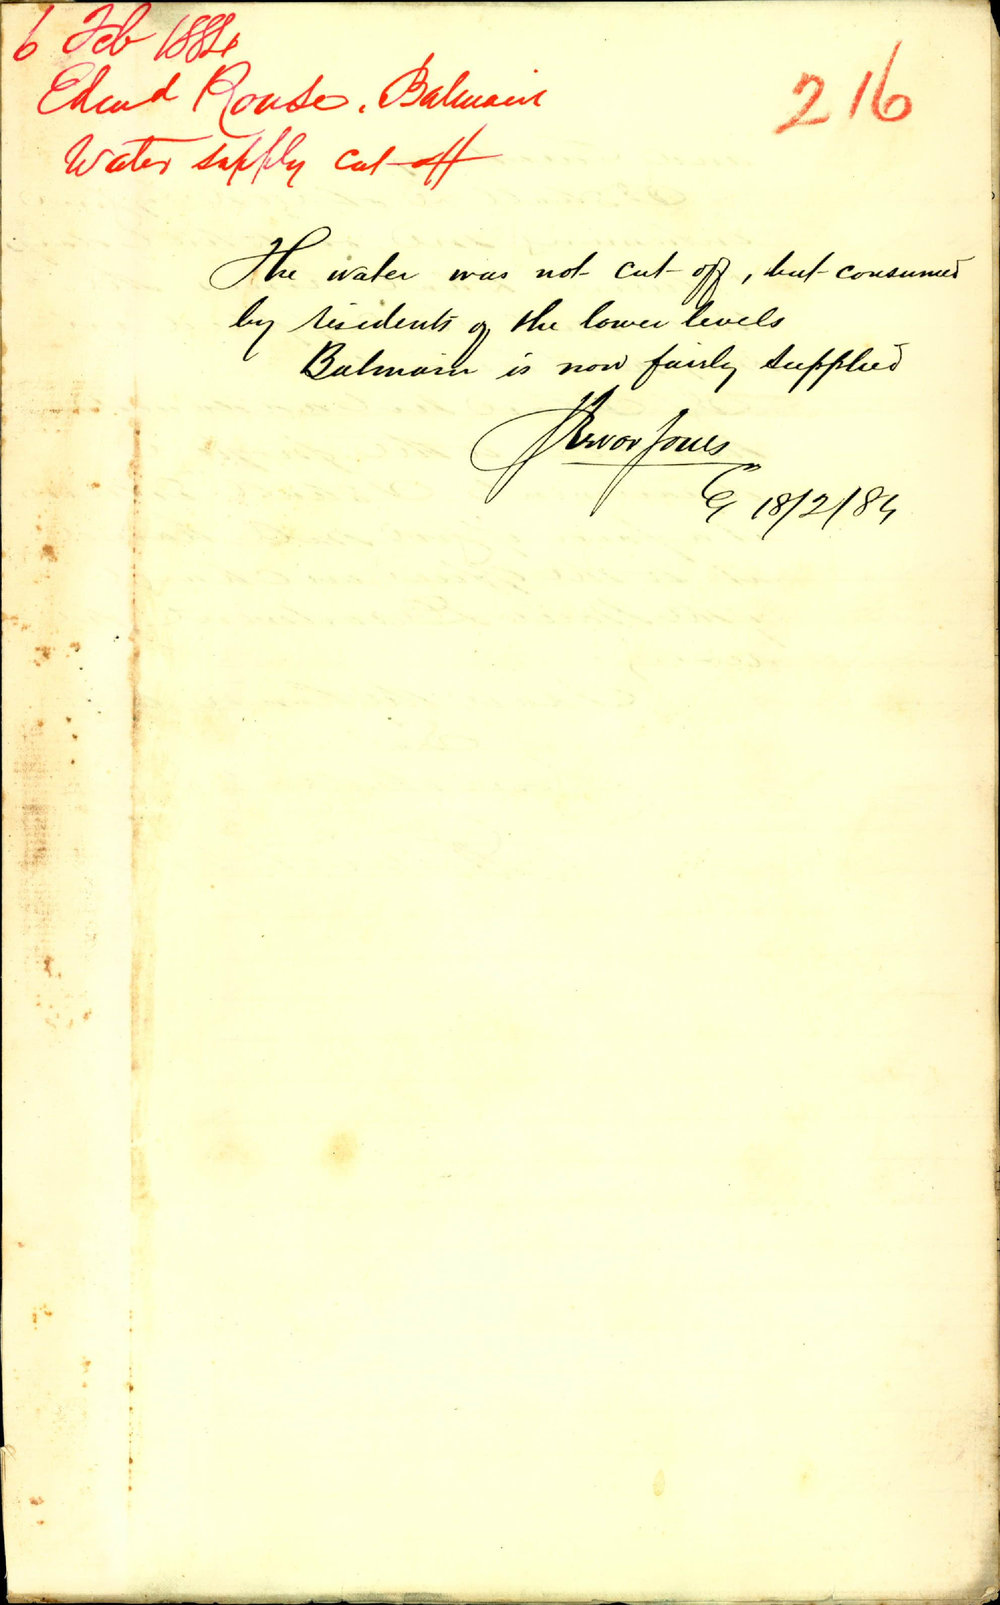 6 Feb 1884
216
Edward Rouse, Balmain
Water supply cut off
The water was not cut off, but consumed
by residents of the lower levels
Balmain is now fairly supplied
J Trevor Jones
CE 18/2/84